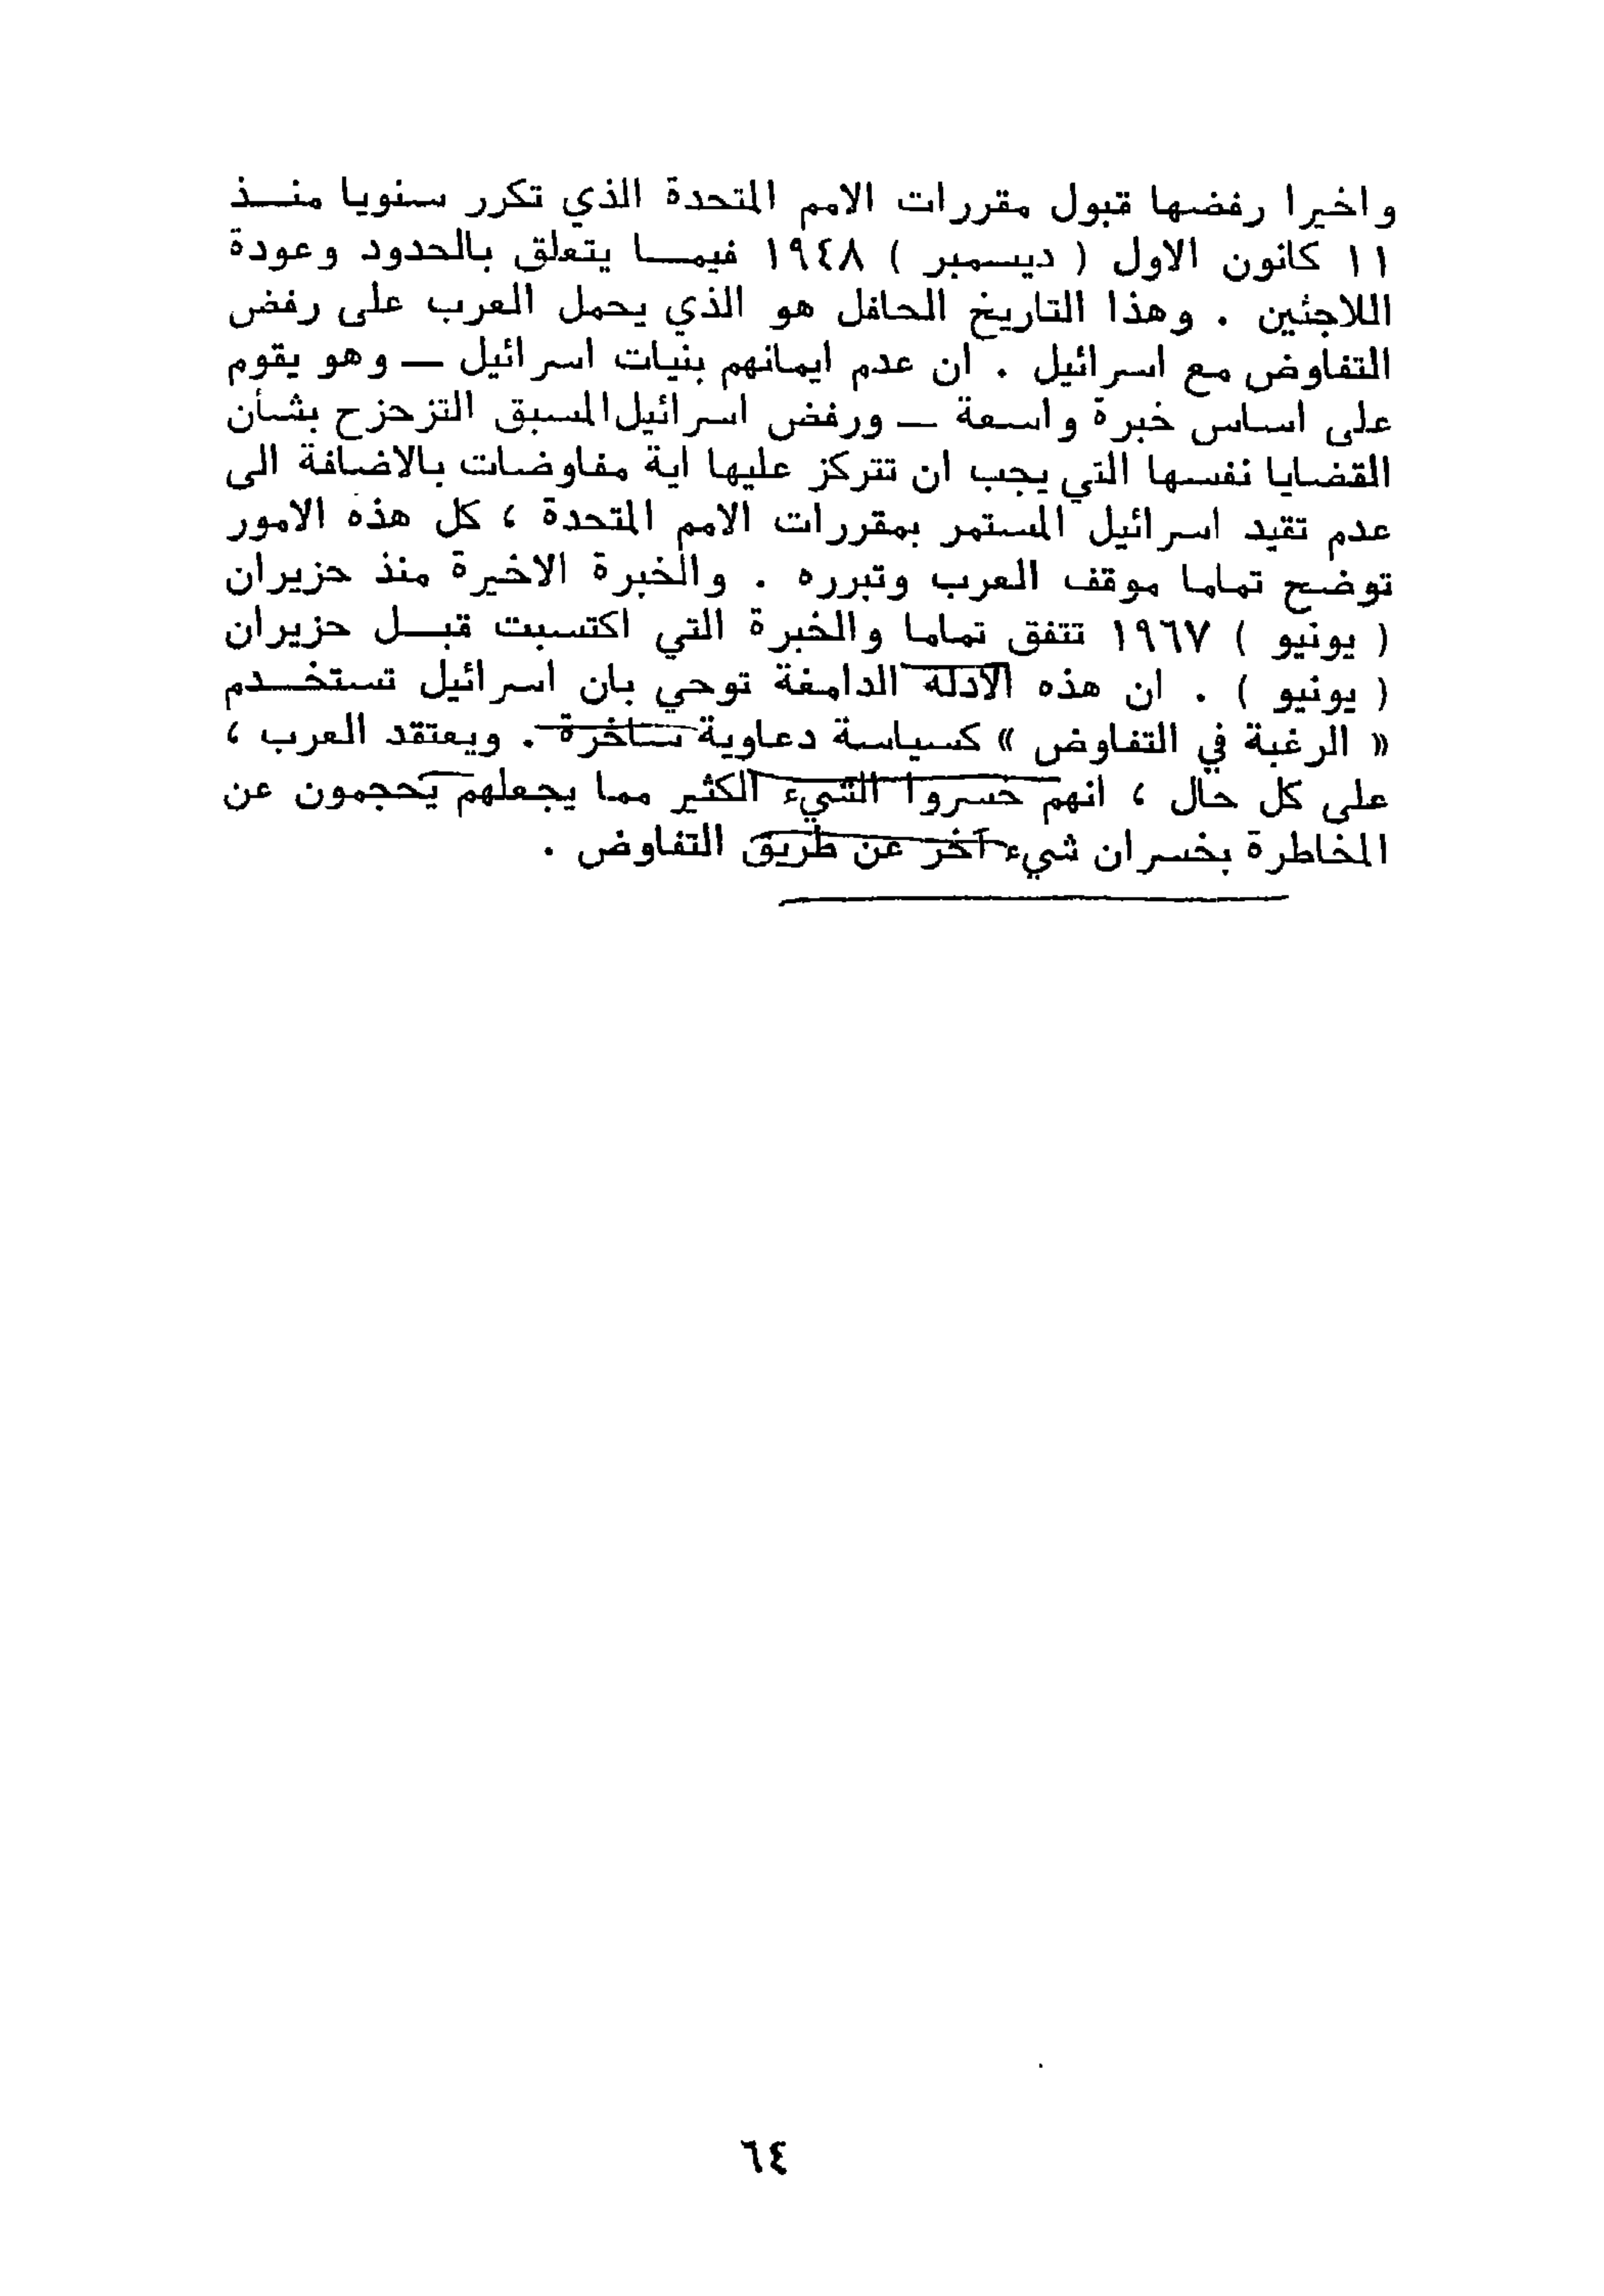 واخيرا رفضها قبول مقررات الامم المتحدة الذي تكرر سنويا منـــذ
١١ كانون الاول ( ديسمبر ) ١٩٤٨ فيمـــا يتعلق بالحدود وعودة
اللاجئين . وهذا التاريخ الحافل هو الذي يحمل العرب على رفض
التفاوض مع اسرائيل . ان عدم ايمانهم بنيات اسرائيل — وهو يقوم
على اساس خبرة واسعة — ورفض اسرائيل المسبق التزحزح بشأن
القضايا نفسها التي يجب ان تتركز عليها اية مفاوضات بالاضافة الى
عدم تقيد اسرائيل المستمر بمقررات الامم المتحدة ، كل هذه الامور
توضح تماما موقف العرب وتبرره . والخبرة الاخيرة منذ حزيران
( يونيو ) ١٩٦٧ تتفق تماما والخبرة التي اكتسبت قبـــل حزيران
( يونيو ) . ان هذه الادلة الدامغة توحي بان اسرائيل تستخـــدم
« الرغبة في التفاوض » كسياسة دعاوية ساخرة . ويعتقد العرب ،
على كل حال ، انهم خسروا الشيء الكثير مما يجعلهم يحجمون عن
المخاطرة بخسران شيء آخر عن طريق التفاوض .
٦٤